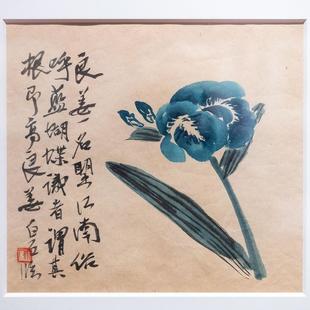 良姜名墅江南俗
呼蓝蝴蝶识者谓其
根即高良姜 白石